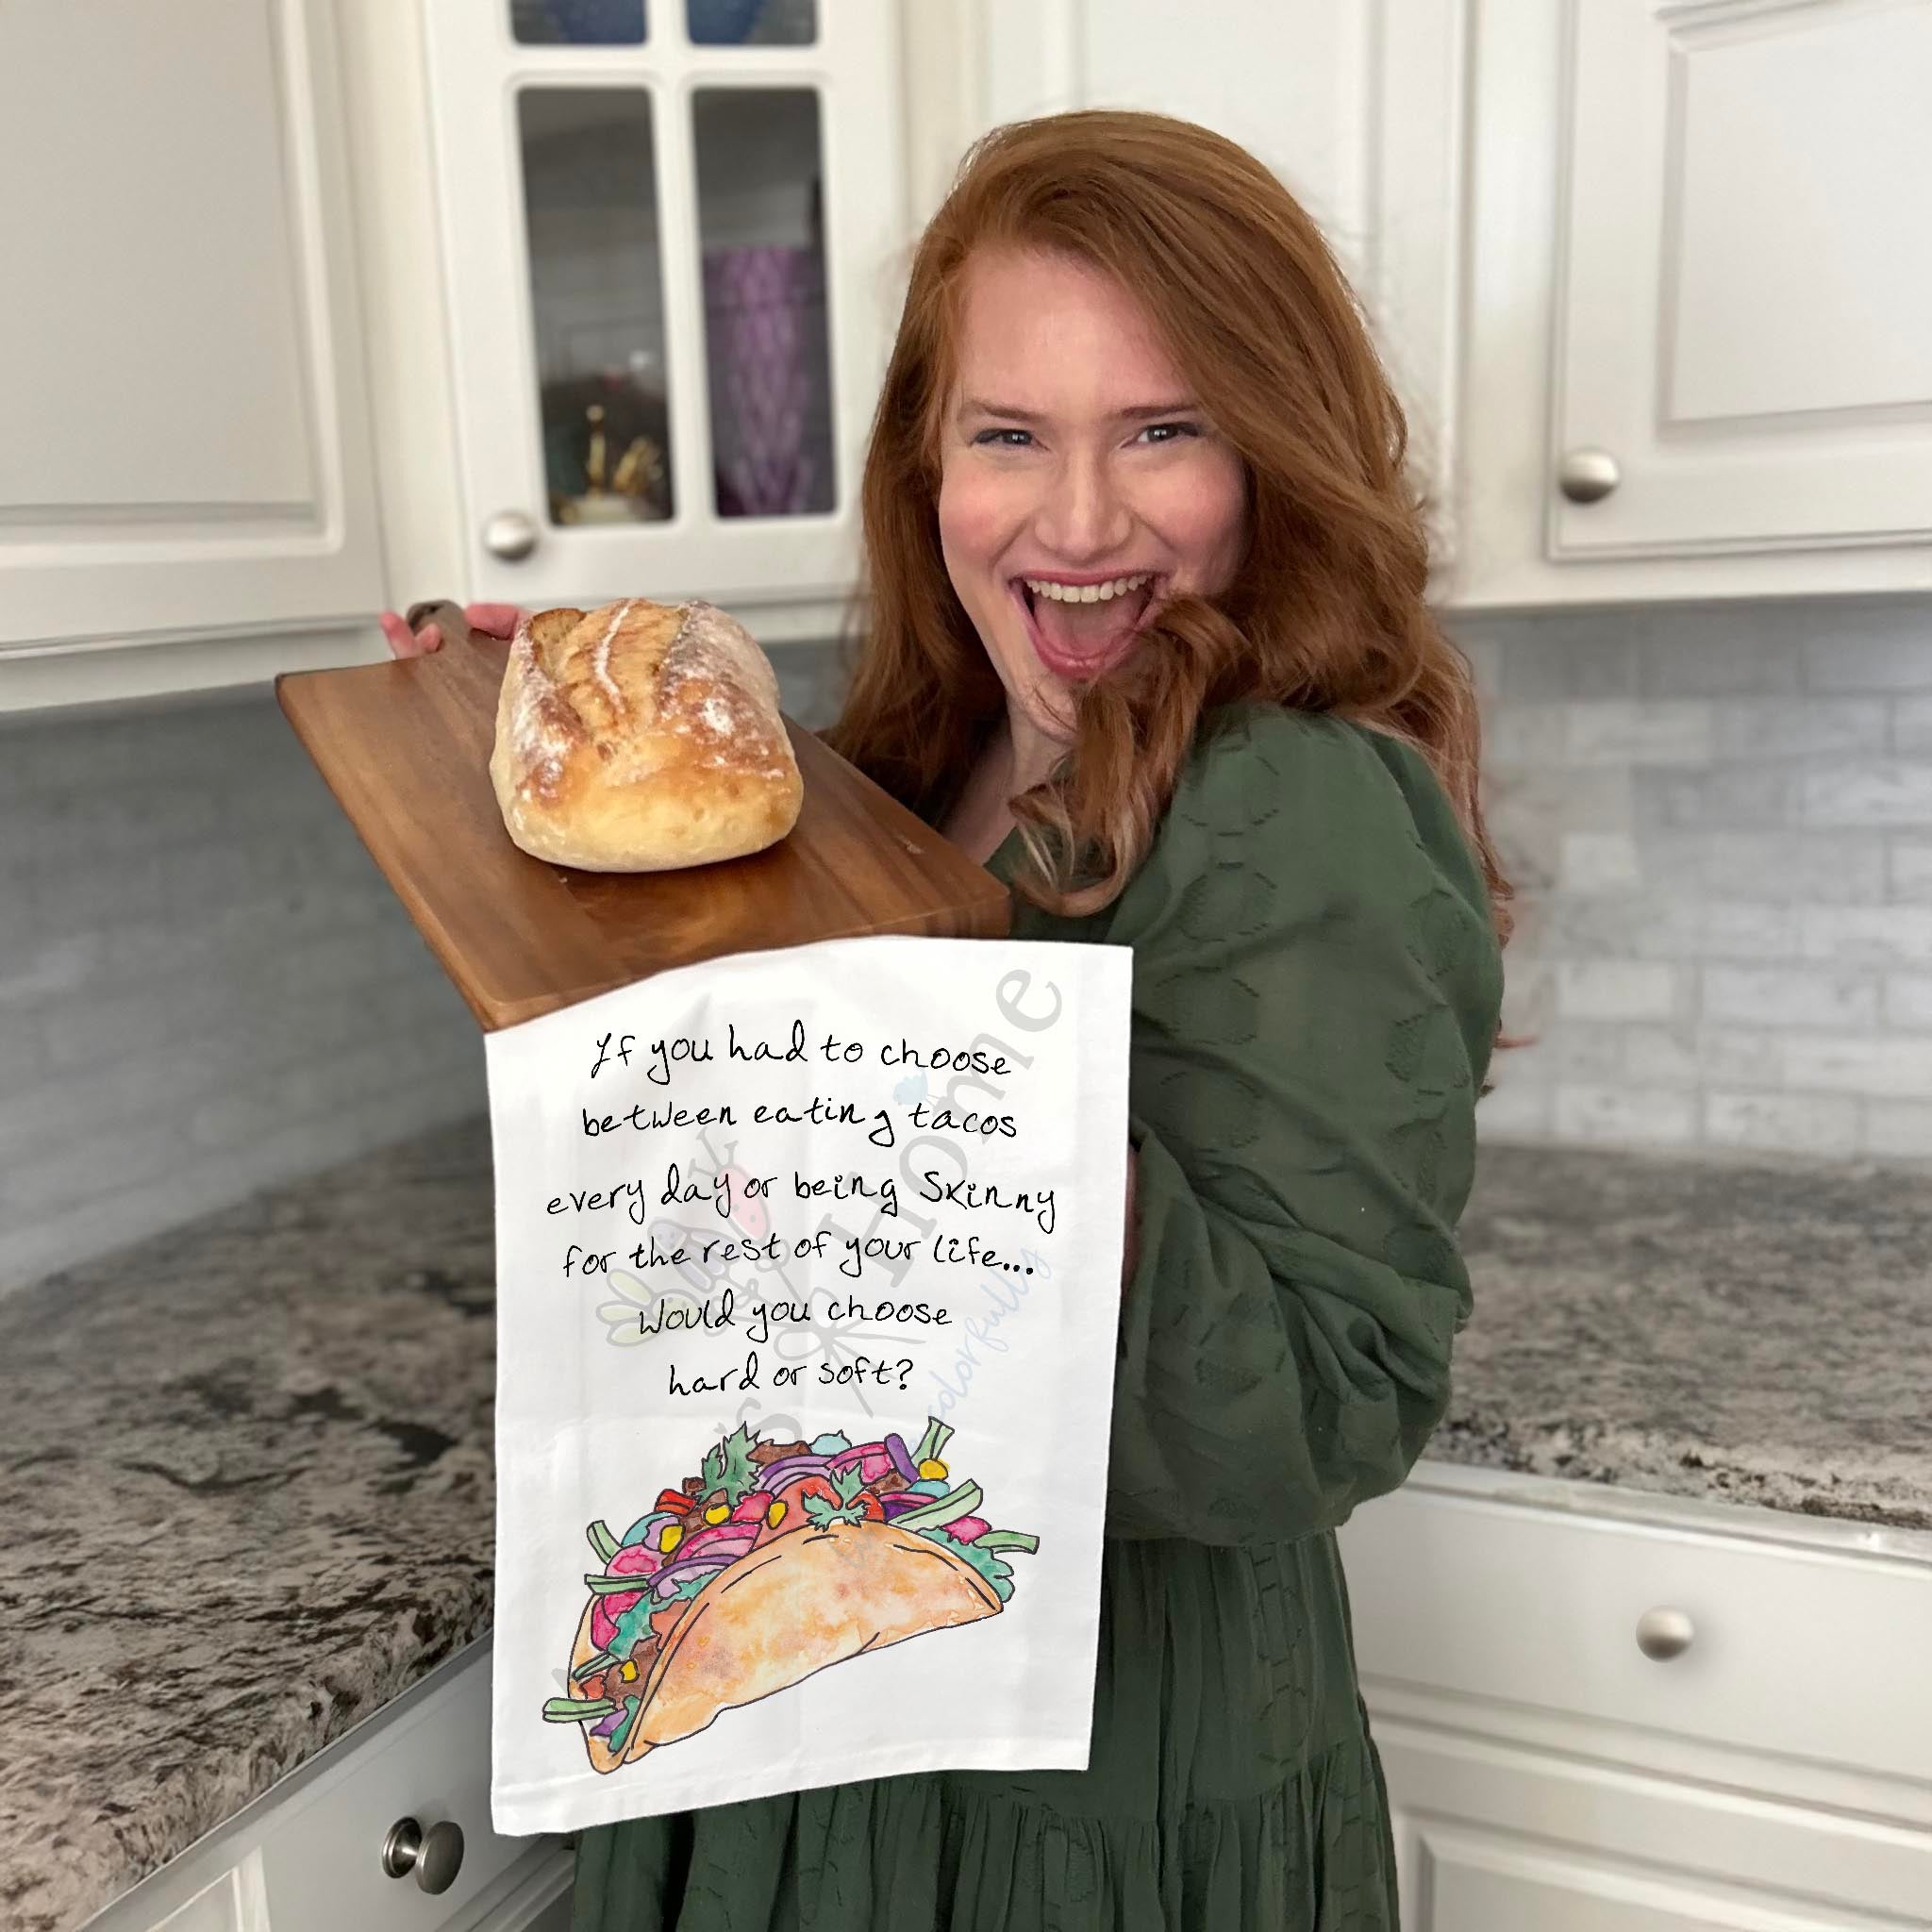 If you had to choose
between eating tacos
every day or being Skinny
for the rest of your life...
Would you choose
hard or soft?
Home
colorfully